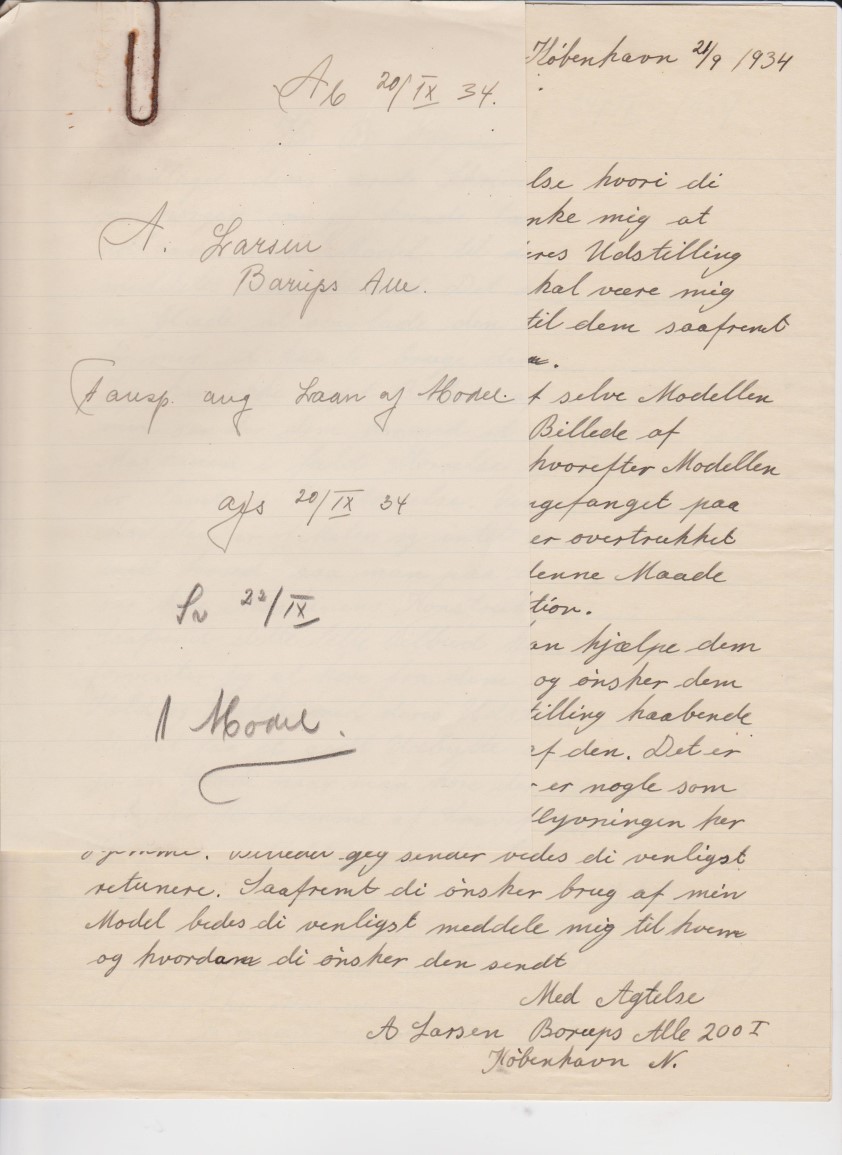 Ab 20/IX 34.
A. Larsen
Borups Alle.
ang Laan af Model.
afs 20/IX 34
Sv 22/IX
1 Model.
København 21/9 1934
lse hvori di
nke mig at
eres Udstilling
kal være mig
til dem saafremt
t selve Modellen
Billede af
hvorefter Modellen
ngefanget paa
er overtrukket
denne Maade
tion.
an hjælpe dem
og ønsker dem
tilling haabende
af den. Det er
er nogle som
flyvningen her
hjemme. Billedet jeg sender bedes di venligst
retunere. Saafremt di ønsker brug af min
Model bedes di venligst meddele mig til hvem
og hvordan di ønsker den sendt
Med Agtelse
A Larsen Borups Alle 200 I
København N.